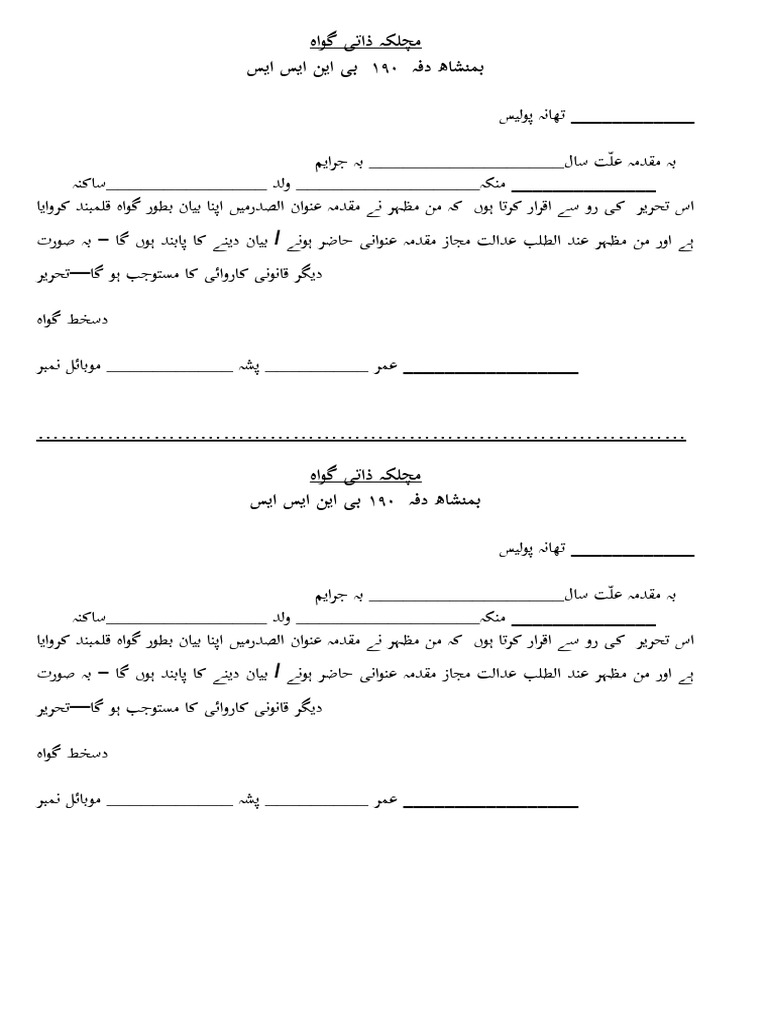 مچلکہ ذاتی گواہ
بمنشاھ دفہ ۱۹۰ بی این ایس ایس
____________ تھانہ پولیس
بہ مقدمہ علّت سال___________________ بہ جرایم
______________ منکہ__________________ ولد ________________ساکنہ
اس تحریر کی رو سے اقرار کرتا ہوں کہ من مظہر نے مقدمہ عنوان الصدرمیں اپنا بیان بطور گواہ قلمبند کروایا
ہے اور من مظہر عند الطلب عدالت مجاز مقدمہ عنوانی حاضر ہونے / بیان دینے کا پابند ہوں گا – بہ صورت
دیگر قانونی کاروائی کا مستوجب ہو گا—تحریر
دسخط گواہ
_________________ عمر __________ پشہ ____________ موبائل نمبر
...................................................................................
مچلکہ ذاتی گواہ
بمنشاھ دفہ ۱۹۰ بی این ایس ایس
____________ تھانہ پولیس
بہ مقدمہ علّت سال___________________ بہ جرایم
______________ منکہ__________________ ولد ________________ساکنہ
اس تحریر کی رو سے اقرار کرتا ہوں کہ من مظہر نے مقدمہ عنوان الصدرمیں اپنا بیان بطور گواہ قلمبند کروایا
ہے اور من مظہر عند الطلب عدالت مجاز مقدمہ عنوانی حاضر ہونے / بیان دینے کا پابند ہوں گا – بہ صورت
دیگر قانونی کاروائی کا مستوجب ہو گا—تحریر
دسخط گواہ
_________________ عمر __________ پشہ ____________ موبائل نمبر